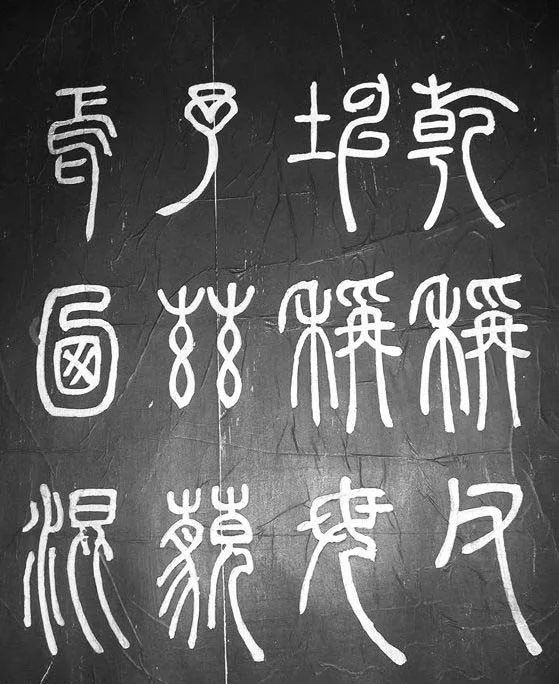 乾稱父
坤稱母
予茲藐
焉乃混